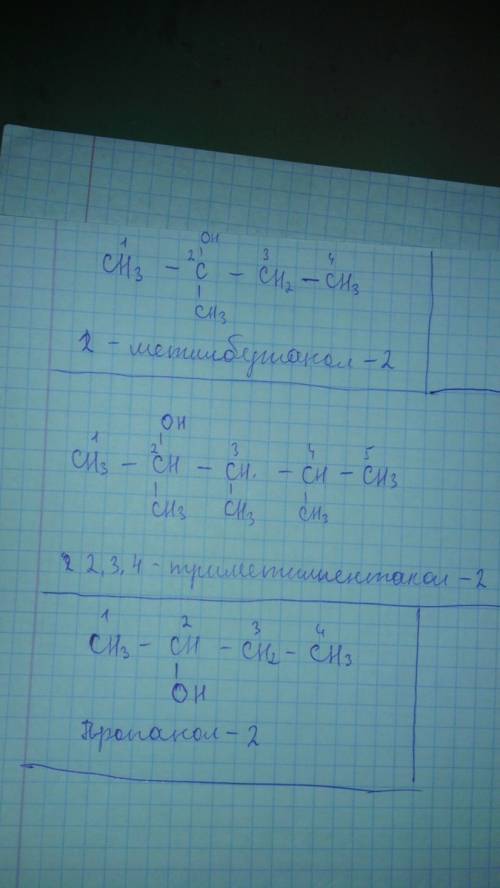 OH
1 2 3 4
CH3 – C – CH2 – CH3
CH3
2 - метилбутанол - 2
OH
1 2 3 4 5
CH3 – CH – CH – CH – CH3
CH3 CH3 CH3
2,3,4 - триметилпентанол - 2
1 2 3 4
CH3 – CH – CH2 – CH3
OH
Пропанол - 2